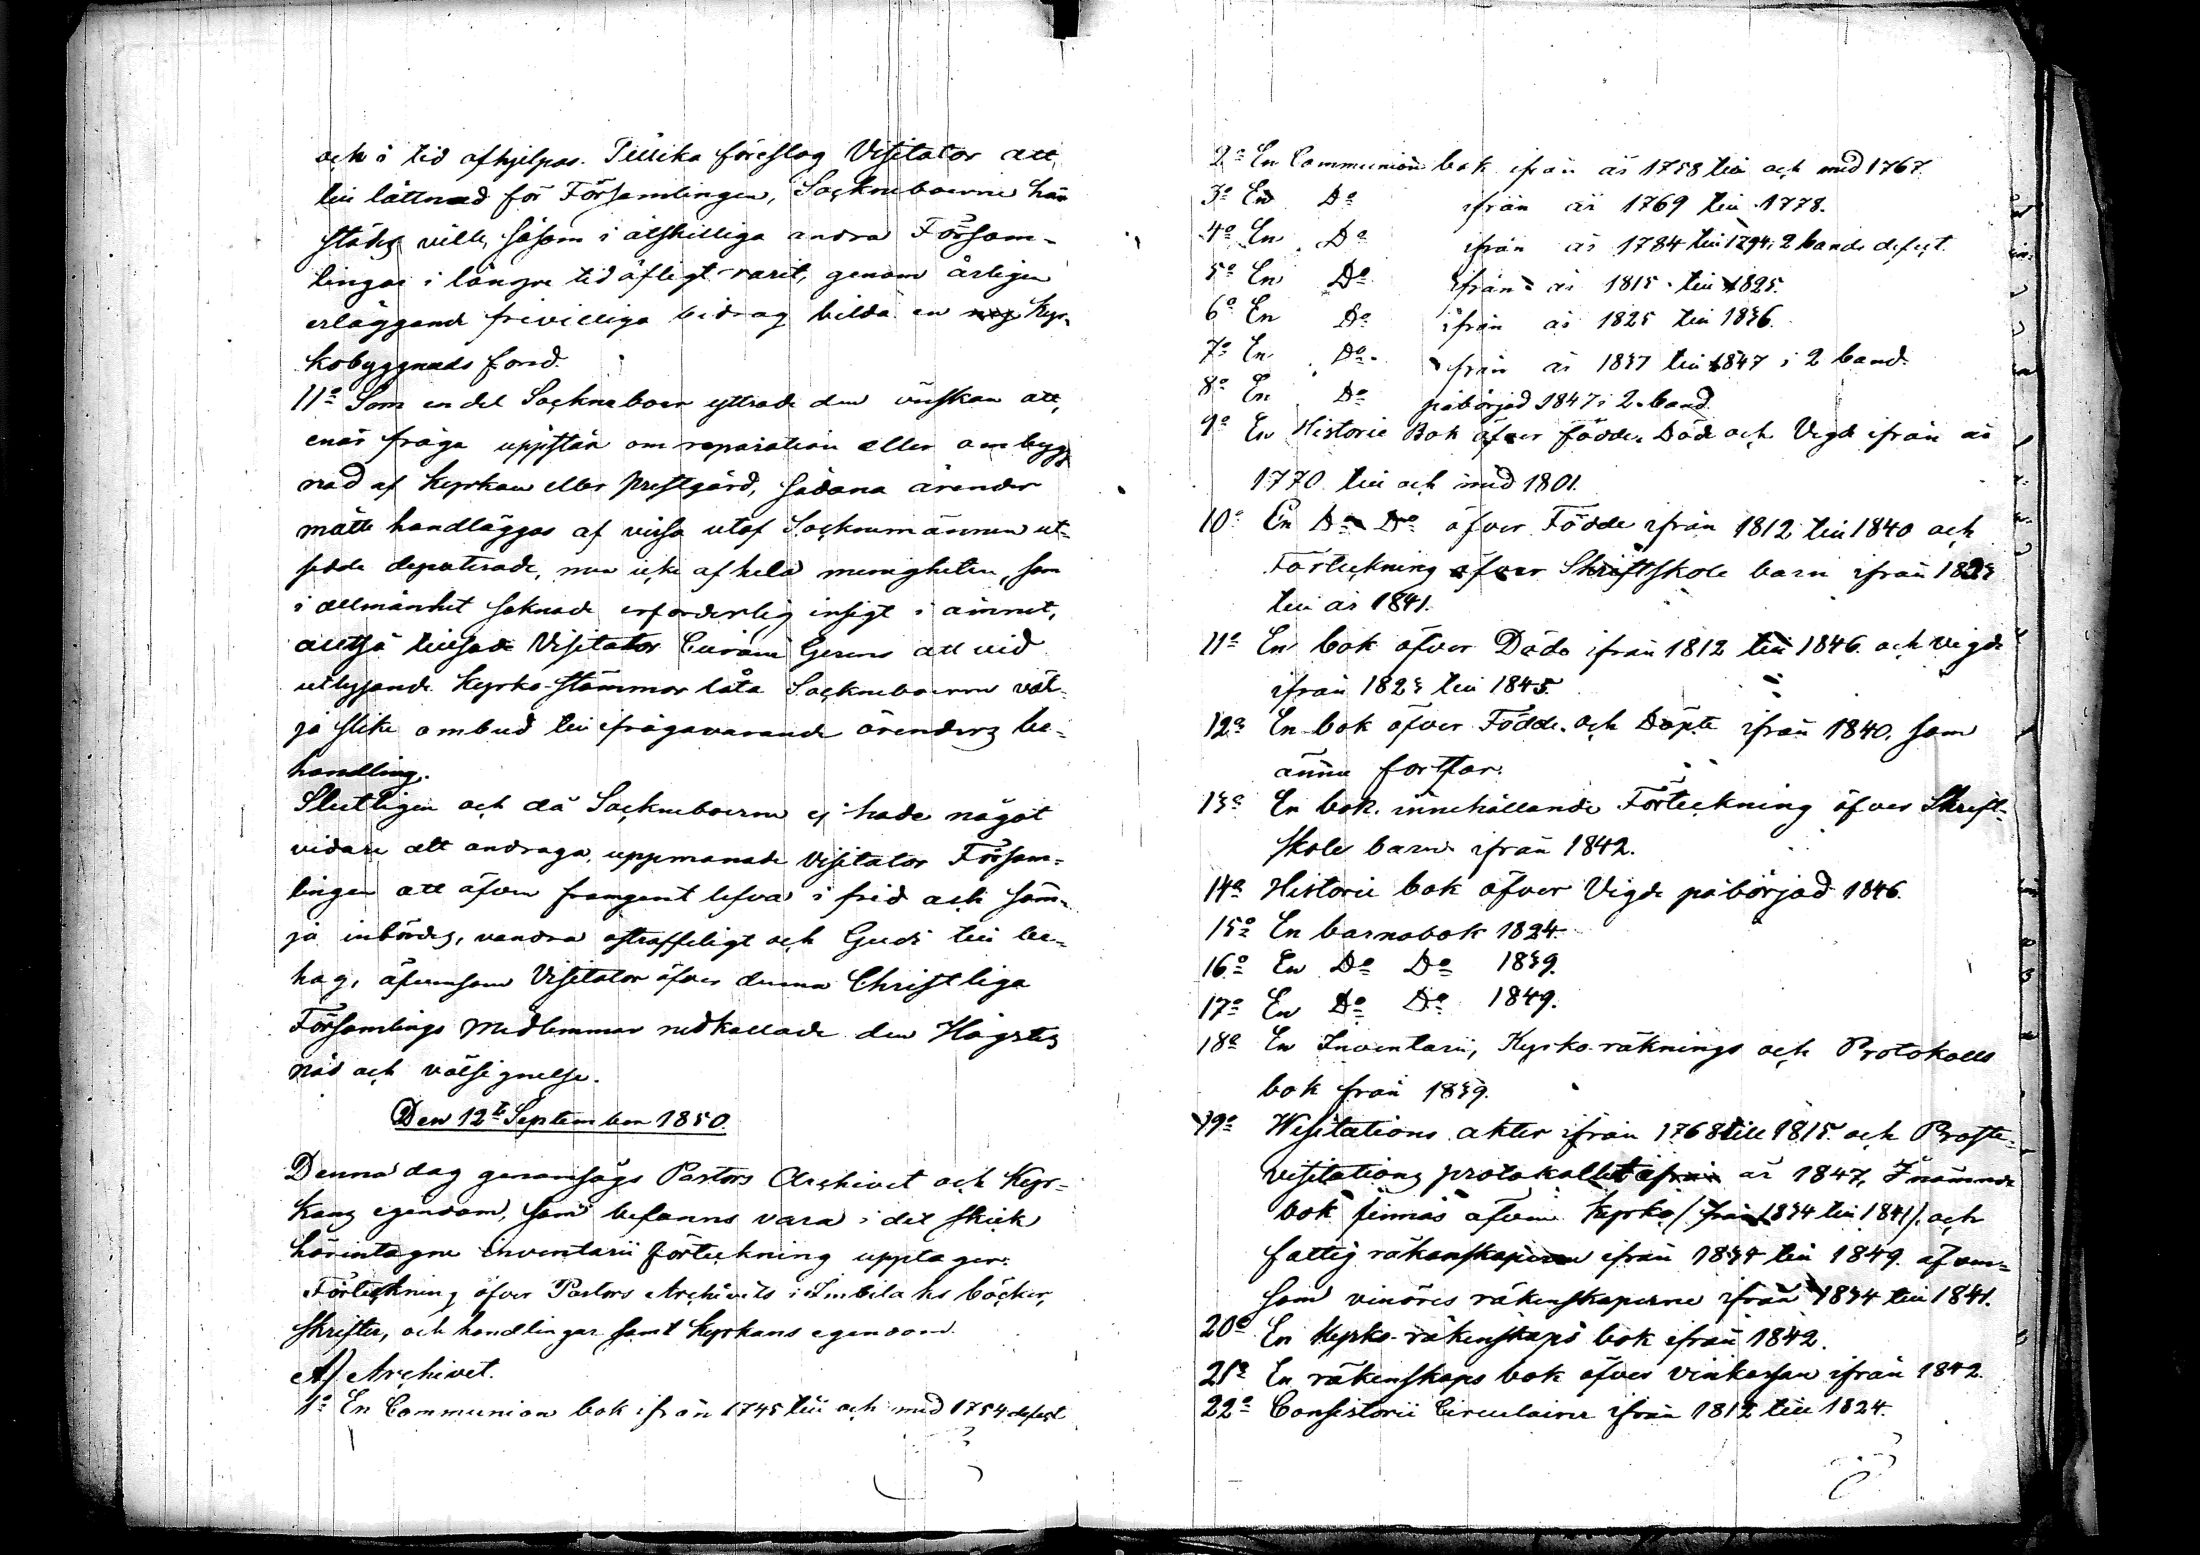 och i tid afhjelpas. Tillika föreslog Visitator att
till lättnad för Församlingen, Sockneboerne här
städes ville, såsom i åtskilliga andra Försam-
lingar i längre tid öfligt varit, genom årligen
erläggande frivilliga bidrag bilda en Kyr-
kobyggnads fond.
11o Som en del Socknboer yttrade den önskan att,
enär fråga uppstår om reparation eller ombygg
nad af Kyrkan eller prestgård, sådana ärender
måtte handläggas af vissa utaf Sockenmännen ut-
sedde deputerade, men icke af hela menigheten, som
i allmänhet saknade erforderlig insigt i ämnet,
alltså tillsade Visitator Curam Gerens att vid
utlysande Kyrko-stämmor låta Socknboerne väl-
ja slike ombud till ifrågavarande ärenders be-
handling.
Slutligen och då Socknboerne ej hade något
vidare att andraga, uppmanade Visitator Försam-
lingen att äfven framgent lefva i frid och säm-
ja inbördes, vandra ostraffeligt och Gudi till be-
hag, äfvensom Visitator öfver denna Christliga
Församlings medlemmar nedkallade den Högstes
nåd och välsignelse.
Den 12te September 1850.
Denna dag genomsågs Pastors Archivet och Kyr-
kans egendom, som befanns vara i det skick
härintagne inventarii förteckning upptager.
Förteckning öfver Pastors Archivets i Imbilahs böcker,
skrifter, och handlingar samt Kyrkans egendom.
A) Archivet.
1o En Communion bok ifrån 1745 till och med 1754 defect
2o En Communion bok ifrån år 1758 till och med 1767.
3o En Do ifrån år 1769 till 1778.
4o En Do ifrån år 1784 till 1794 i 2 bande defect.
5o En Do ifrån år 1815 till 1825.
6o En Do ifrån år 1825 till 1836.
7o En Do från år 1837 till 1847 i 2 band.
8o En Do påbörjad 1847 i 2 band.
9o En Historie Bok öfver födde, Döde och Vigde ifrån år
1770 till och med 1801.
10o En Do Do öfver Födde ifrån 1812 till 1840 och
Förteckning öfver Skriftskole barn ifrån 1823
till år 1841.
11o En bok öfver Döde ifrån 1812 till 1846. och vigde
ifrån 1823 till 1845.
12o En bok öfver Födde och Döpte ifrån 1840, som
ännu fortfar.
13o En bok innehållande Förteckning öfver Skrift-
skole barn ifrån 1842.
14o Historie bok öfver Vigde påbörjad 1846.
15o En barnabok 1824.
16o En Do Do 1839.
17o En Do Do 1849.
18o En Inventarii, Kyrko räknings och Protokolls
bok från 1839.
19o Visitations akter ifrån 1768 till 1815 och Proste-
visitations protokollet ifrån år 1847, I nämnde
bok finnas äfven Kyrko (från 1834 till 1841). och
fattig räkenskaperne ifrån 1834 till 1849. äfven-
som vinöres räkenskaperne ifrån 1834 till 1841.
20o En Kyrko-räkenskaps bok ifrån 1842.
21o En räkenskaps bok öfver vinkassan ifrån 1842.
22o Consistorii Circulairer ifrån 1812 till 1824.